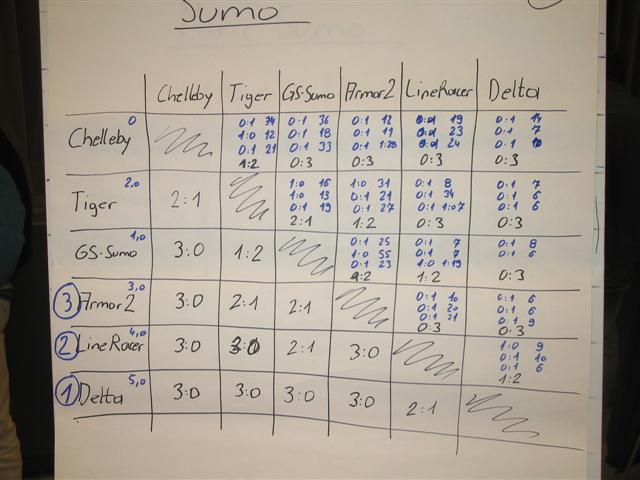 Sumo
Chelleby Tiger GS-Sumo Armor2 LineRacer Delta
Chelleby 0
0:1 34 0:1 36 0:1 12 0:1 19 0:1 14
1:0 12 0:1 18 0:1 11 0:1 23 0:1 7
0:1 21 0:1 33 0:1 1:28 0:1 24 0:1 10
1:2 0:3 0:3 0:3 0:3
Tiger 2,0
2:1
1:0 16 1:0 31 0:1 8 0:1 7
1:0 13 0:1 21 0:1 34 0:1 6
0:1 19 0:1 27 0:1 1:07 0:1 6
2:1 1:2 0:3 0:3
GS-Sumo 1,0
3:0 1:2
0:1 25 0:1 7 0:1 8
1:0 55 0:1 7 0:1 6
0:1 23 1:0 1:19
1:2 1:2 0:3
3 Armor2 3,0
3:0 2:1 2:1
0:1 10 0:1 6
0:1 20 0:1 6
0:1 21 0:1 9
0:3 0:3
2 LineRacer 4,0
3:0 3:0 2:1 3:0
1:0 9
0:1 10
0:1 6
1:2
1 Delta 5,0
3:0 3:0 3:0 3:0 2:1